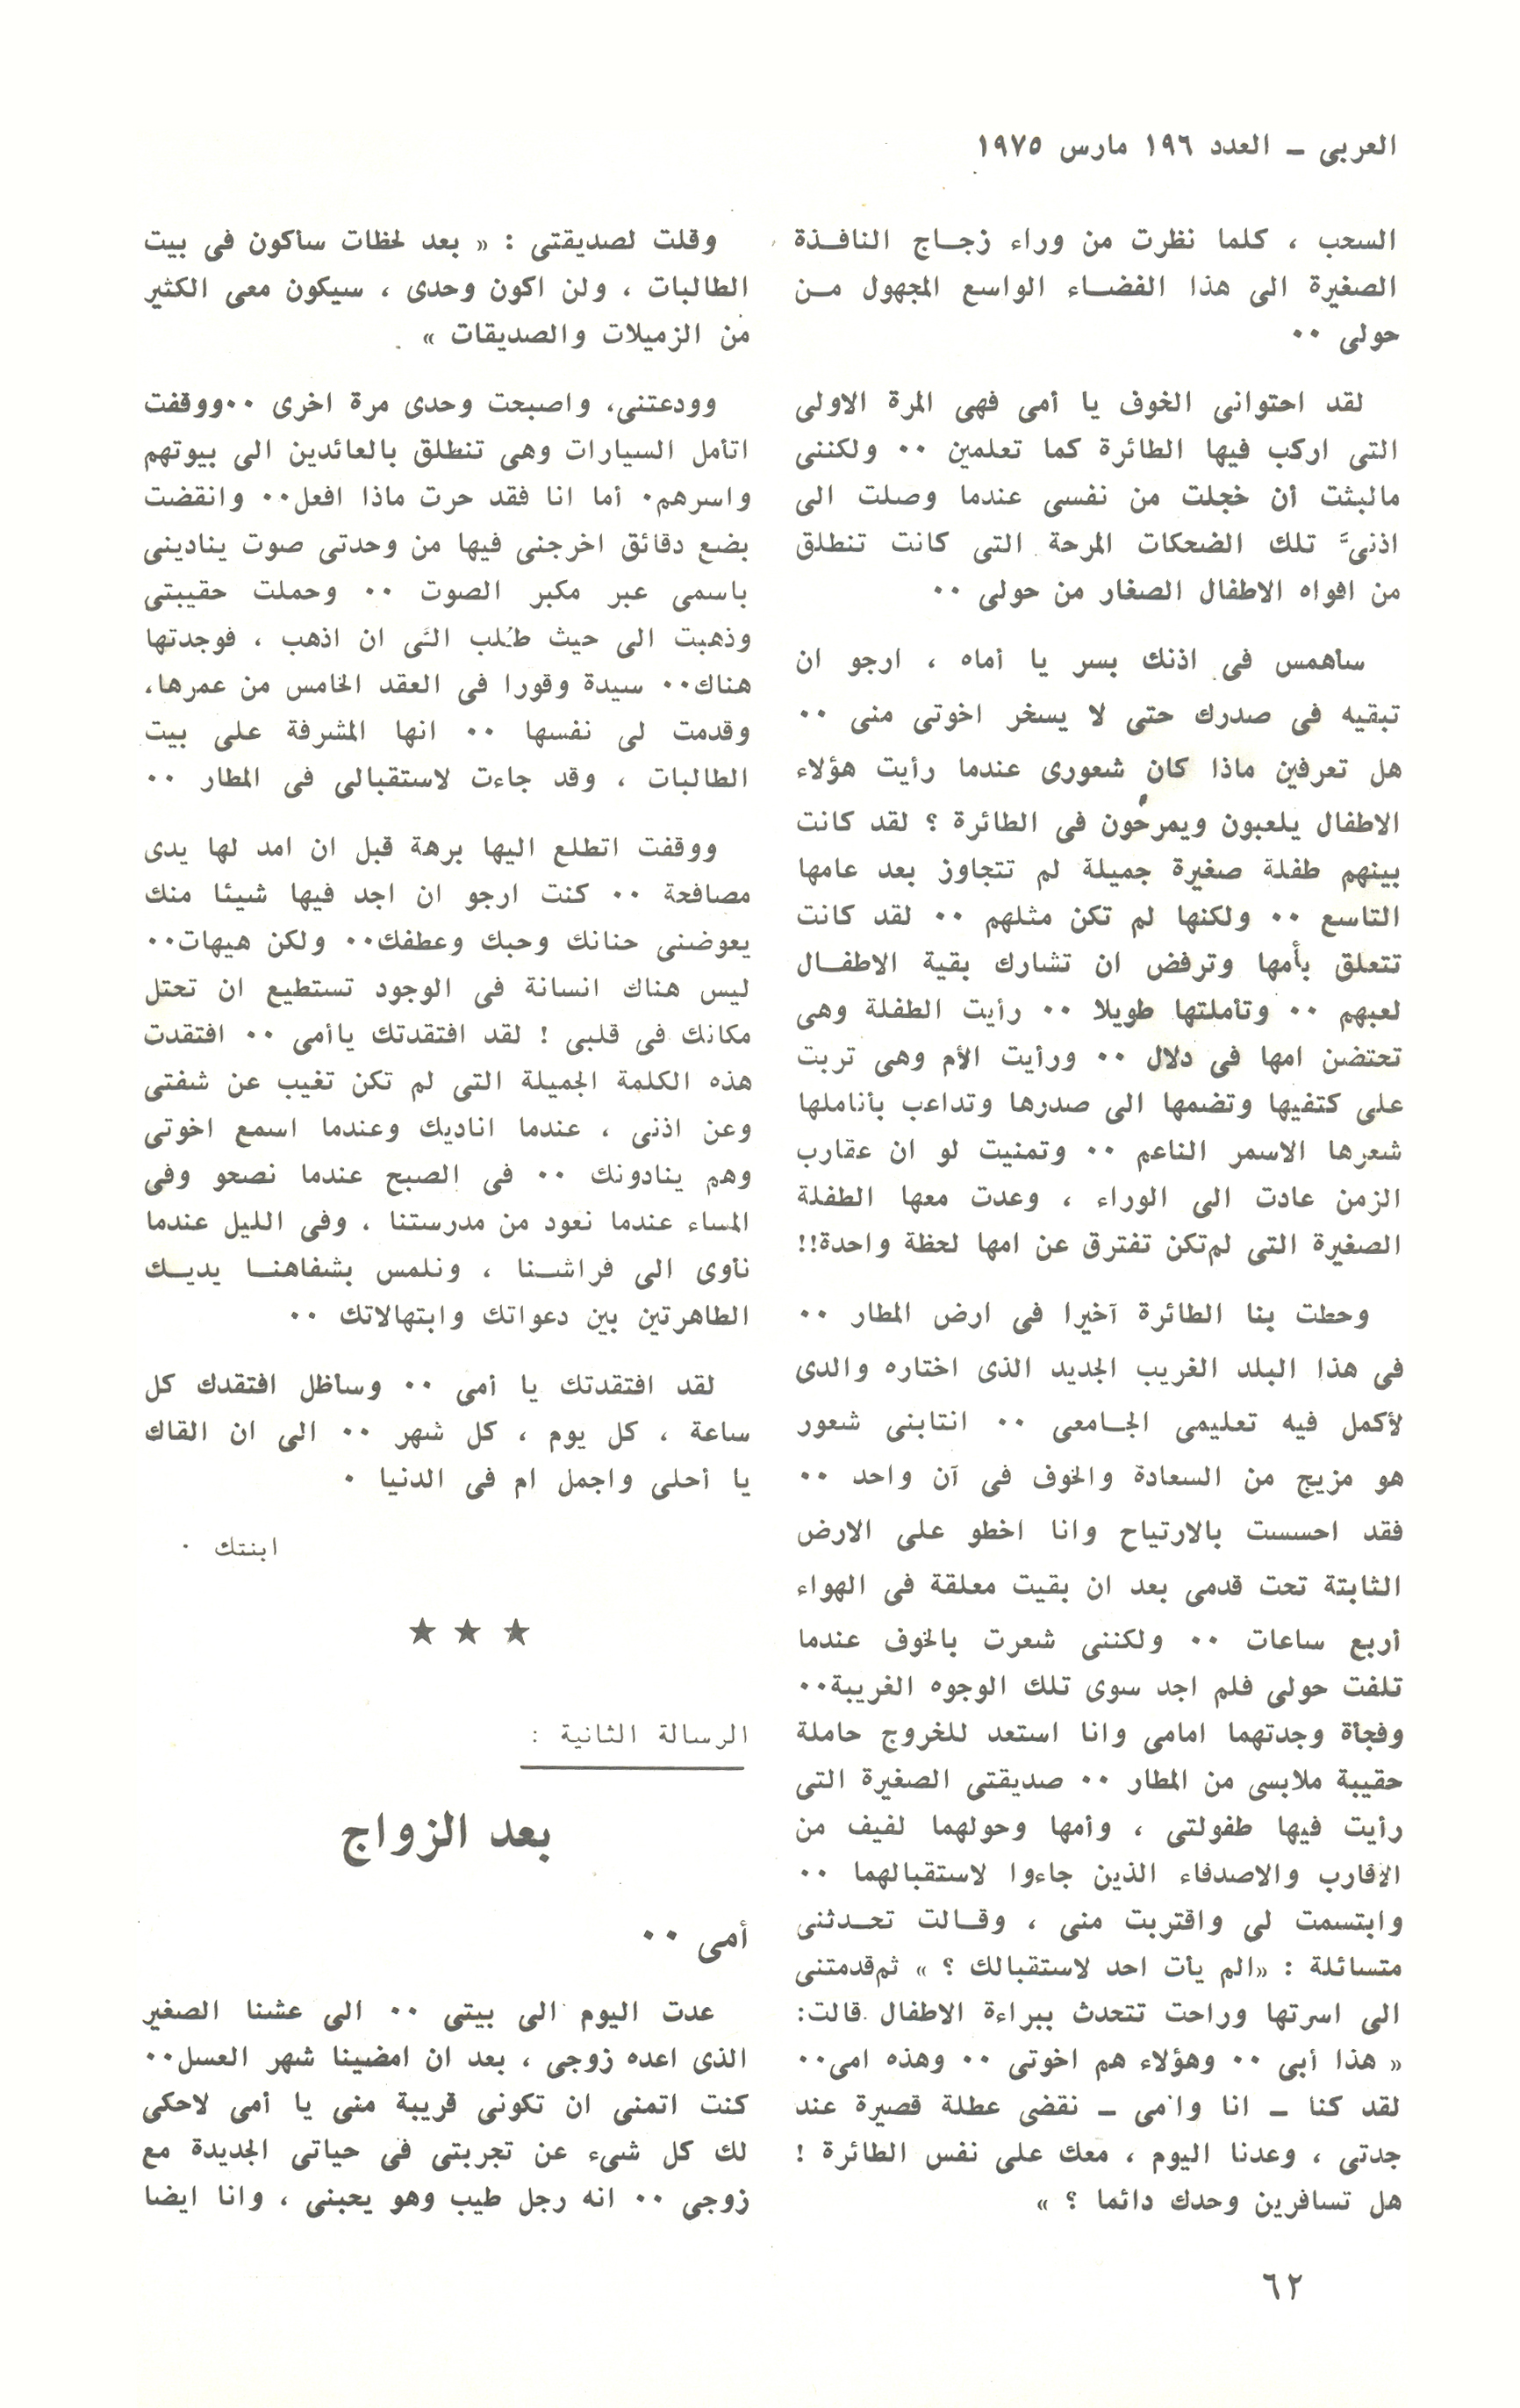 العربى ـ العدد ١٩٦ مارس ١٩٧٥
السحب ، كلما نظرت من وراء زجـاج النافـذة
الصغيرة الى هذا الفضـاء الواسع المجهول مـن
حولى ٠٠
لقد احتوانى الخوف يا أمى فهى المرة الاولى
التى اركب فيها الطائرة كما تعلمين ٠٠ ولكننى
مالبثت أن خجلت من نفسى عندما وصلت الى
اذنىَّ تلك الضحكات المرحة التى كانت تنطلق
من افواه الاطفال الصغار من حولى ٠٠
سأهمس فى اذنك بسر يا أماه ، ارجو ان
تبقيه فى صدرك حتى لا يسخر اخوتى منى ٠٠
هل تعرفين ماذا كان شعورى عندما رأيت هؤلاء
الاطفال يلعبون ويمرحون فى الطائرة ؟ لقد كانت
بينهم طفلة صغيرة جميلة لم تتجاوز بعد عامها
التاسع ٠٠ ولكنها لم تكن مثلهم ٠٠ لقد كانت
تتعلق بأمها وترفض ان تشارك بقية الاطفـال
لعبهم ٠٠ وتأملتها طويلا ٠٠ رأيت الطفلة وهى
تحتضن امها فى دلال ٠٠ ورأيت الأم وهى تربت
على كتفيها وتضمها الى صدرها وتداعب بأناملها
شعرها الاسمر الناعم ٠٠ وتمنيت لو ان عقارب
الزمن عادت الى الوراء ، وعدت معها الطفلة
الصغيرة التى لم تكن تفترق عن امها لحظة واحدة!!
وحطت بنا الطائرة آخيرا فى ارض المطار ٠٠
فى هذا البلد الغريب الجديد الذى اختاره والدى
لأكمل فيه تعليمى الجـامعى ٠٠ انتابنى شعور
هو مزيج من السعادة والخوف فى آن واحد ٠٠
فقد احسست بالارتياح وانا اخطو على الارض
الثابتة تحت قدمى بعد ان بقيت معلقة فى الهواء
أربع ساعات ٠٠ ولكننى شعرت بالخوف عندما
تلفت حولى فلم اجد سوى تلك الوجوه الغريبة٠٠
وفجأة وجدتهما امامى وانا استعد للخروج حاملة
حقيبة ملابسى من المطار ٠٠ صديقتى الصغيرة التى
رأيت فيها طفولتى ، وأمها وحولهما لفيف من
الاقارب والاصدقاء الذين جاءوا لاستقبالهما ٠٠
وابتسمت لى واقتربت منى ، وقـالت تحـدثنى
متسائلة : «الم يأت احد لاستقبالك ؟ » ثم قدمتنى
الى اسرتها وراحت تتحدث ببراءة الاطفال قالت:
« هذا أبى ٠٠ وهؤلاء هم اخوتى ٠٠ وهذه امى٠٠
لقد كنا ـ انا وامى ـ نقضى عطلة قصيرة عند
جدتى ، وعدنا اليوم ، معك على نفس الطائرة !
هل تسافرين وحدك دائما ؟ »
وقلت لصديقتى : « بعد لحظات سأكون فى بيت
الطالبات ، ولن اكون وحدى ، سيكون معى الكثير
من الزميلات والصديقات »
وودعتنى، واصبحت وحدى مرة اخرى ٠٠ووقفت
اتأمل السيارات وهى تنطلق بالعائدين الى بيوتهم
واسرهم٠ أما انا فقد حرت ماذا افعل٠٠ وانقضت
بضع دقائق اخرجنى فيها من وحدتى صوت ينادينى
باسمى عبر مكبر الصوت ٠٠ وحملت حقيبتى
وذهبت الى حيث طُلب الىَ ان اذهب ، فوجدتها
هناك٠٠ سيدة وقورا فى العقد الخامس من عمرها،
وقدمت لى نفسها ٠٠ انها المشرفة على بيت
الطالبات ، وقد جاءت لاستقبالى فى المطار ٠٠
ووقفت اتطلع اليها برهة قبل ان امد لها يدى
مصافحة ٠٠ كنت ارجو ان اجد فيها شيئا منك
يعوضنى حنانك وحبك وعطفك٠٠ ولكن هيهات٠٠
ليس هناك انسانة فى الوجود تستطيع ان تحتل
مكانك فى قلبى ! لقد افتقدتك ياأمى ٠٠ افتقدت
هذه الكلمة الجميلة التى لم تكن تغيب عن شفتى
وعن اذنى ، عندما اناديك وعندما اسمع اخوتى
وهم ينادونك ٠٠ فى الصبح عندما نصحو وفى
المساء عندما نعود من مدرستنا ، وفى الليل عندما
نأوى الى فراشـنا ، ونلمس بشفاهنـا يديـك
الطاهرتين بين دعواتك وابتهالاتك ٠٠
لقد افتقدتك يا أمى ٠٠ وسأظل افتقدك كل
ساعة ، كل يوم ، كل شهر ٠٠ الى ان القاك
يا أحلى واجمل ام فى الدنيا ٠
ابنتك ٠
★ ★ ★
الرسالة الثانية :
بعد الزواج
أمى ٠٠
عدت اليوم الى بيتى ٠٠ الى عشنا الصغير
الذى اعده زوجى ، بعد ان امضينا شهر العسل٠٠
كنت اتمنى ان تكونى قريبة منى يا أمى لاحكى
لك كل شىء عن تجربتى فى حياتى الجديدة مع
زوجى ٠٠ انه رجل طيب وهو يحبنى ، وانا ايضا
٦٢